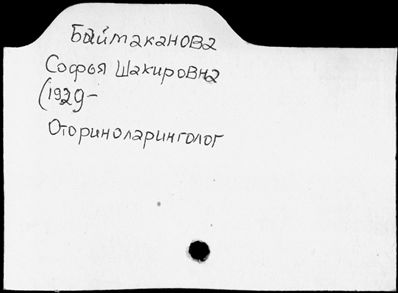 Баймаканова
Софья Шакировна
(1929-
Оториноларинголог